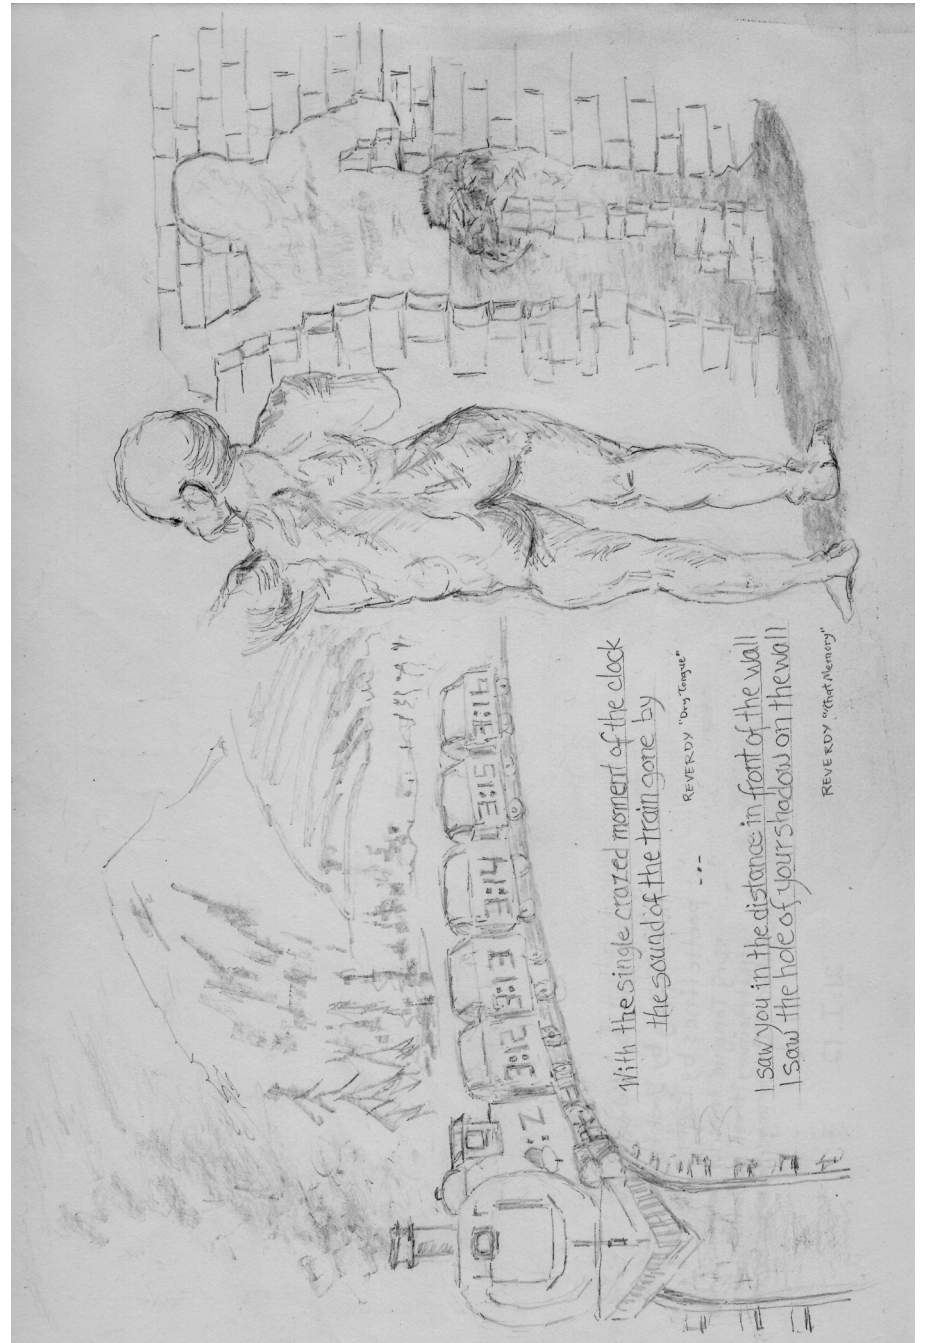 3:12 3:13 3:14 3:15 3:16
With the single crazed moment of the clock
the sound of the train gone by
REVERDY "Dry Tongue"
- • -
I saw you in the distance in front of the wall
I saw the hole of your shadow on the wall
REVERDY "That Memory"